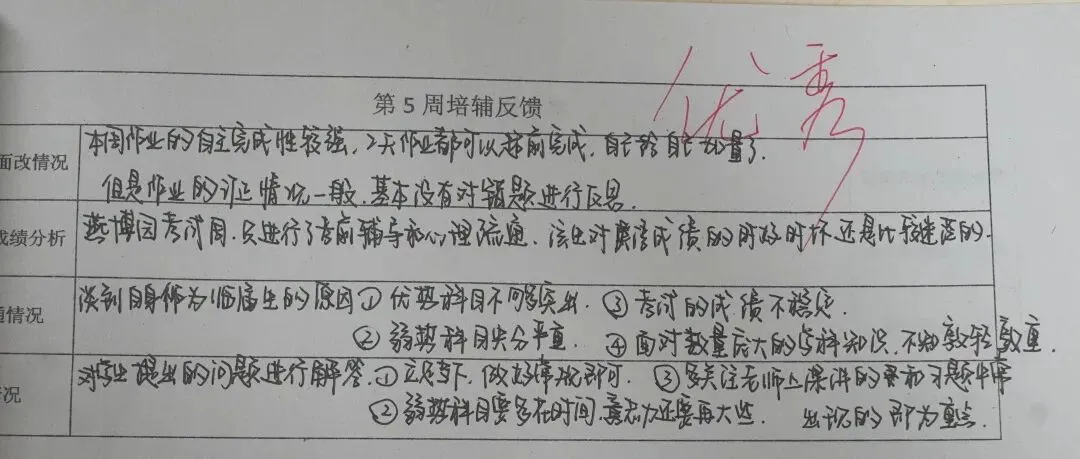 优秀
第 5 周培辅反馈
面改情况
本周作业的自主完成性较强，2天作业都可以提前完成，自己给自己加量了.
但是作业的订正情况一般，基本没有对错题进行反思.
成绩分析
燕博园考试周，只进行了考前辅导和心理疏通，该生对廉洁成绩的时好时坏还是比较迷茫的.
情况
谈到自身作为临届生的原因① 优势科目不够突出. ③ 考试的成绩不稳定.
② 弱势科目失分严重. ④ 面对数量庞大的学科知识，不知孰轻孰重.
况
对学生提出的问题进行解答.① 立足当下，做好常规即可. ③ 多关注老师上课讲的
② 弱势科目要多花时间，意志力还要再大些. 出现的即为重点.